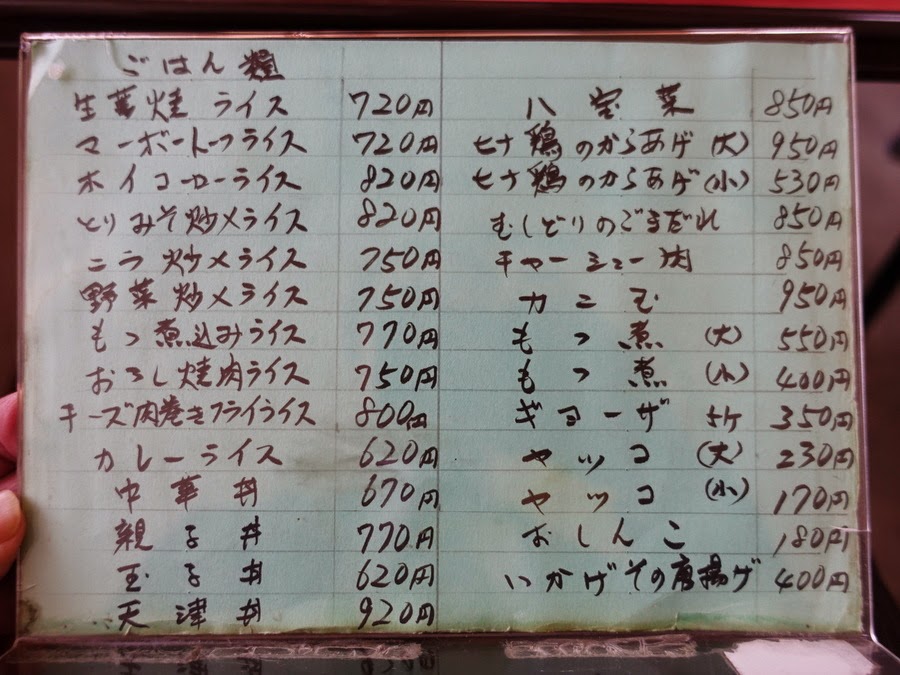 ごはん類
生姜焼ライス 720円
マーボートーフライス 720円
ホイコーローライス 820円
とりみそ炒メライス 820円
ニラ炒メライス 750円
野菜炒メライス 750円
もつ煮込みライス 770円
おろし焼肉ライス 750円
チーズ肉巻きフライライス 800円
カレーライス 620円
中華丼 670円
親子丼 770円
玉子丼 620円
天津丼 920円
八宝菜 850円
ヒナ鶏のからあげ(大) 950円
ヒナ鶏のからあげ(小) 530円
むしどりのごまだれ 850円
チャーシュー肉 850円
カニ玉 950円
もつ煮(大) 550円
もつ煮(小) 400円
ギョーザ 5ケ 350円
ヤッコ(大) 230円
ヤッコ(小) 170円
おしんこ 180円
いかげその唐揚げ 400円